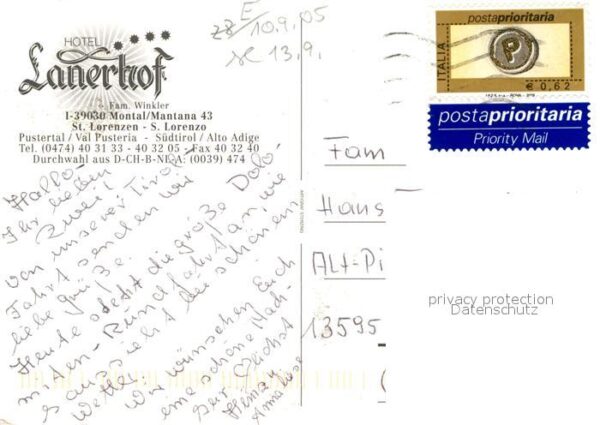 HOTEL
Lanerhof
Fam. Winkler
I-39030 Montal/Mantana 43
St. Lorenzen - S. Lorenzo
Pustertal / Val Pusteria - Südtirol / Alto Adige
Tel. (0474) 40 31 33 - 40 32 05 - Fax 40 32 40
Durchwahl aus D-CH-B-NL-A: (0039) 474
E 10.9.05
13.9.
Hallo
Ihr lieben
Zwei!
von unserer Tirol-
Fahrt senden wir
liebe Grüße.
Heute steht die große Dolo-
miten-Rundfahrt an, wie
es aussieht bei schönem
Wetter.
Wir wünschen Euch
eine schöne Nach-
Heinz
Annaliese
postaprioritaria
ITALIA
P
€ 0,62
postaprioritaria
Priority Mail
Fam
Hans
Alt-Pi
13595
privacy protection
Datenschutz